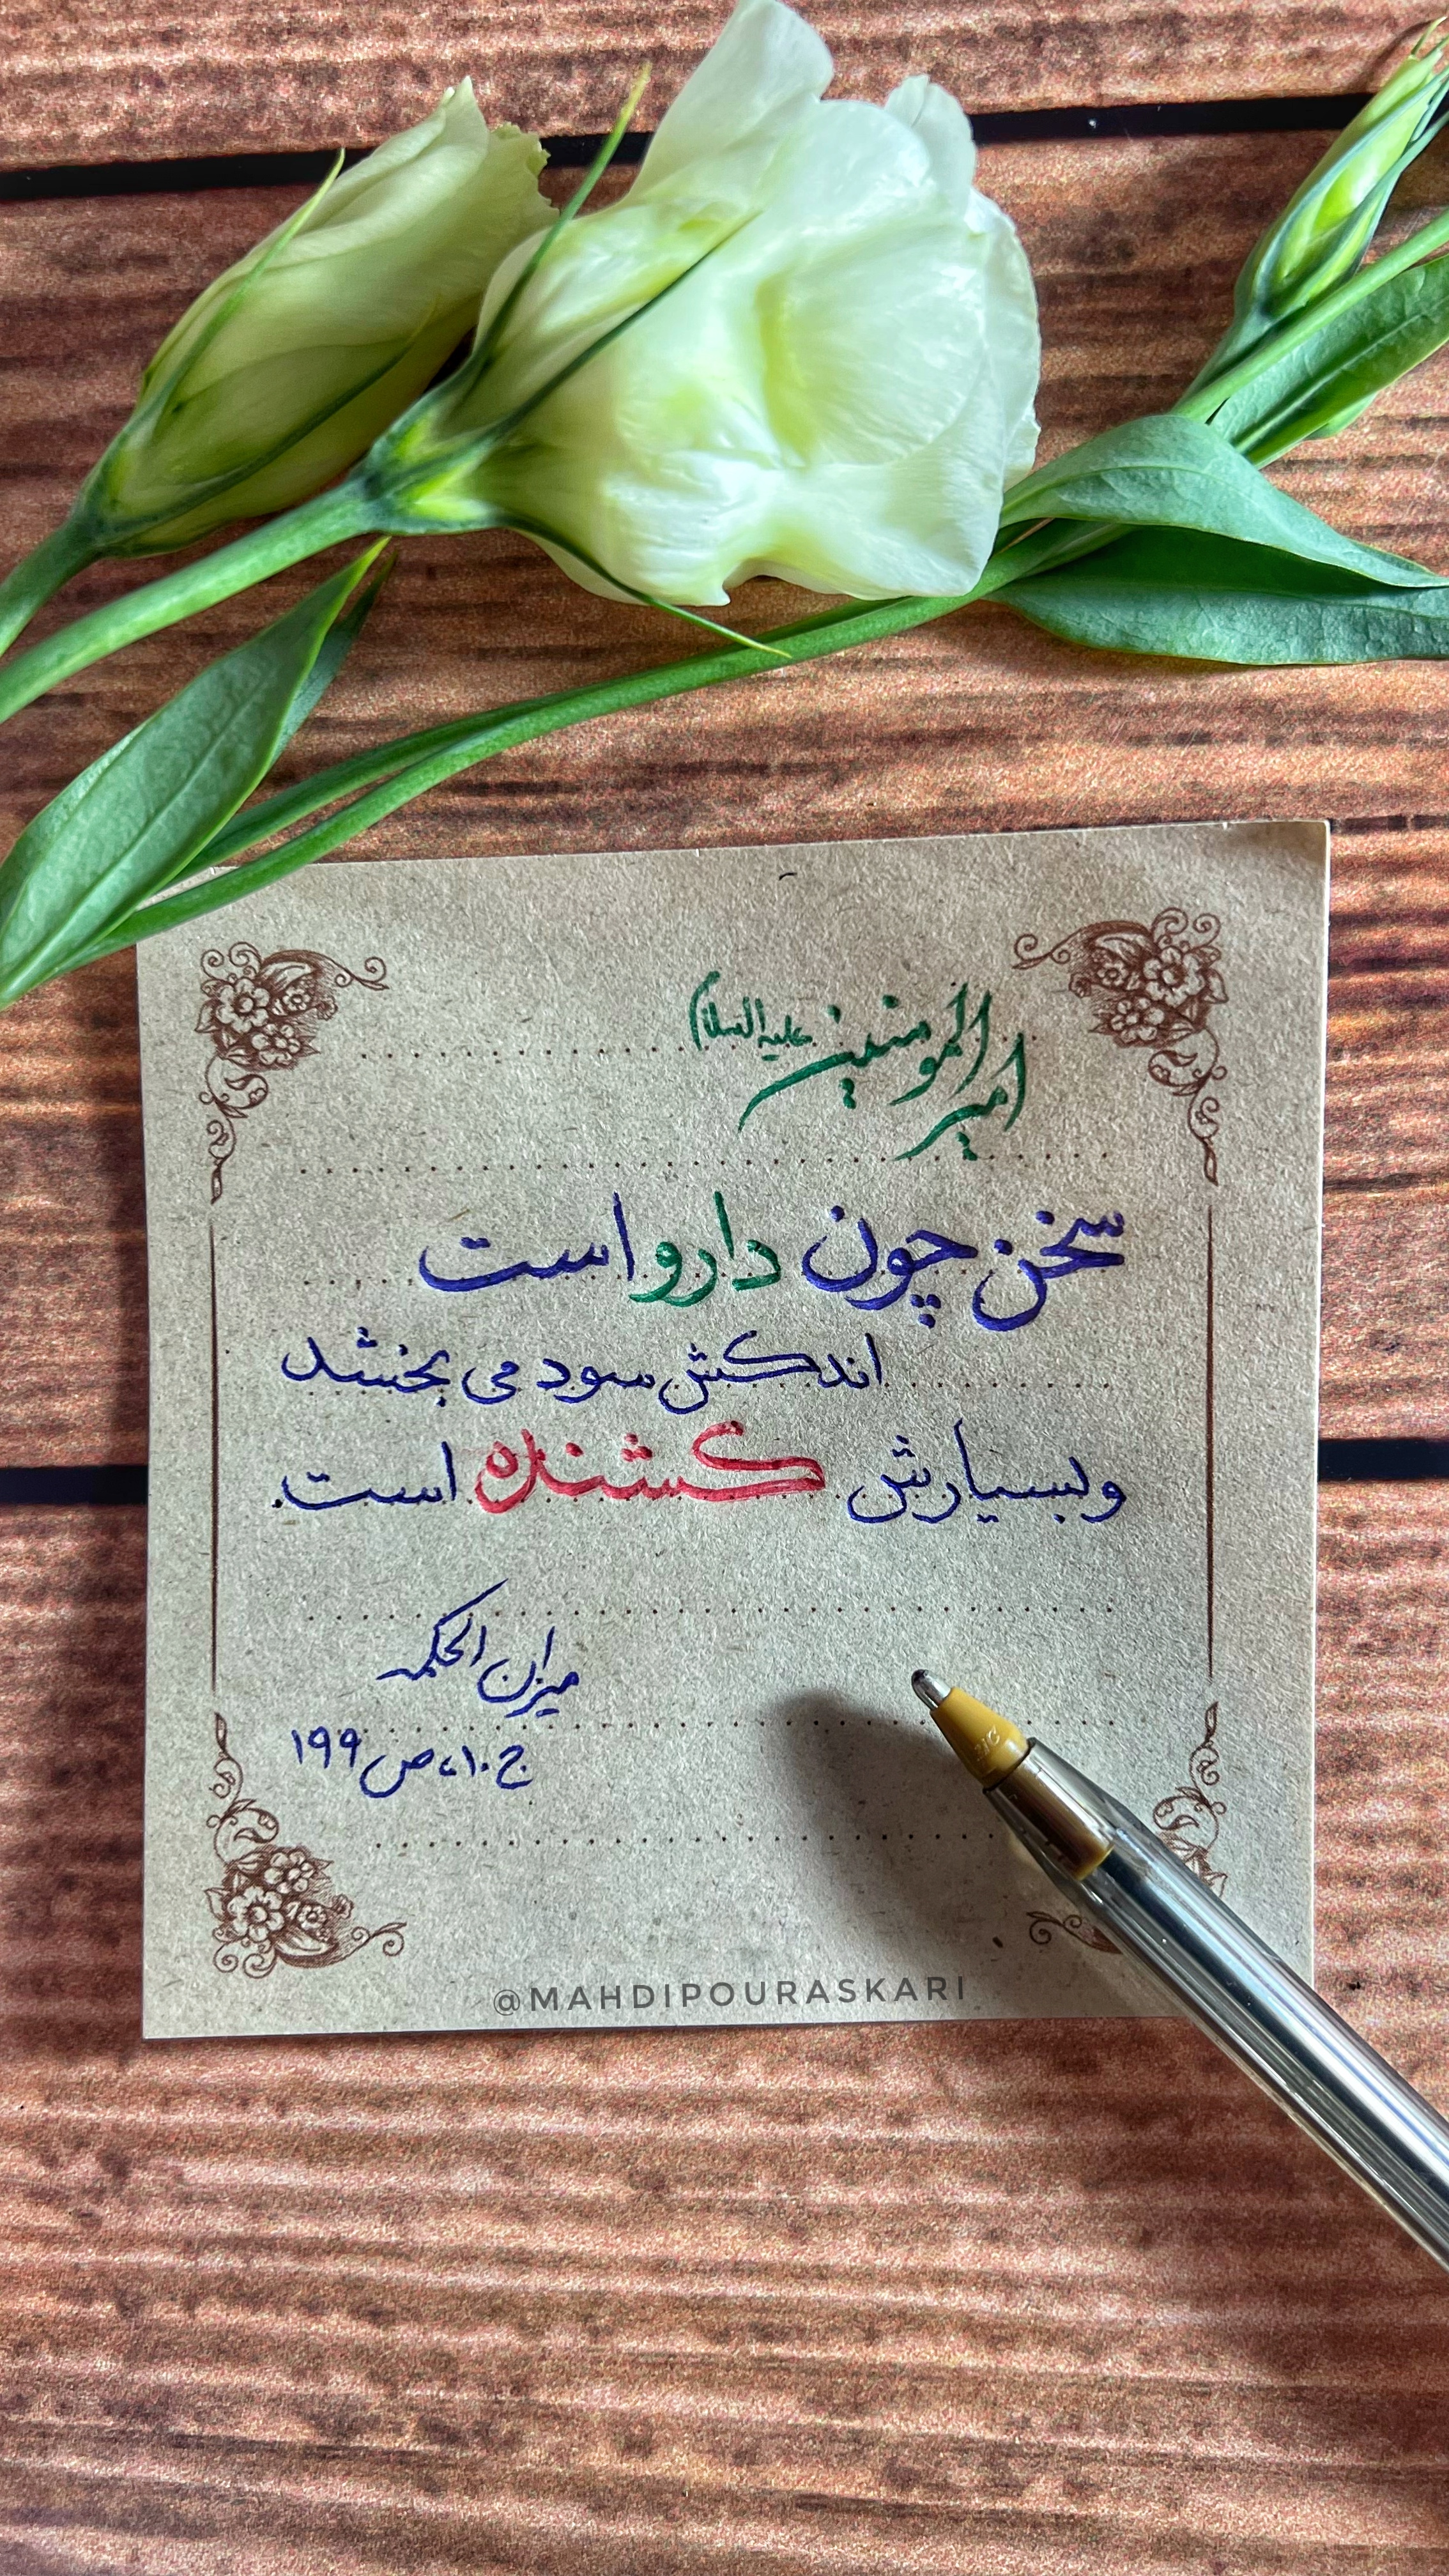 امیرالمومنین علیه السلام
سخن چون دارو است
اندکش سود می بخشد
و بسیارش کشنده است.
میزان الحکمه
ج۱۰، ص۱۹۹
@MAHDIPOURASKARI